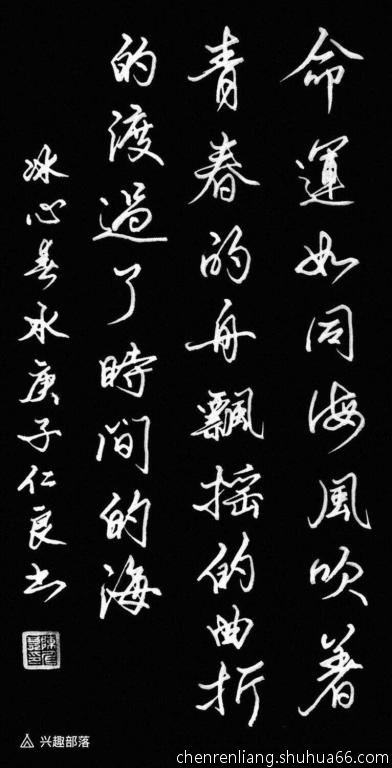 命運如同海風吹著
青春的舟飄搖的曲折
的渡過了時間的海
冰心春水庚子仁良书
兴趣部落
chenrenliang.shuhua66.com